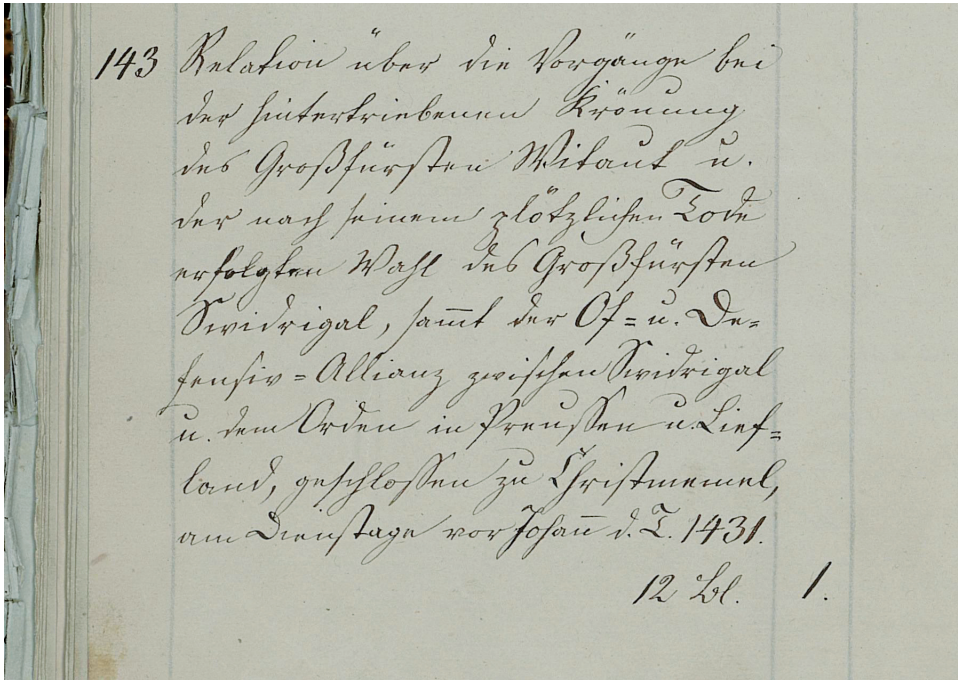 143 Relation über die Vorgänge bei
der hintertriebenen Krönung
des Großfürsten Witaut u.
der nach seinem plötzlichen Tode
erfolgten Wahl des Großfürsten
Swidrigal, sam̄t der Of= u. De=
fensiv=Allianz zwischen Swidrigal
u. dem Orden in Preussen u. Lief=
land, geschlossen zu Christmemel,
am Dienstage vor Johan̄ d. T. 1431.
12 Bl. 1.